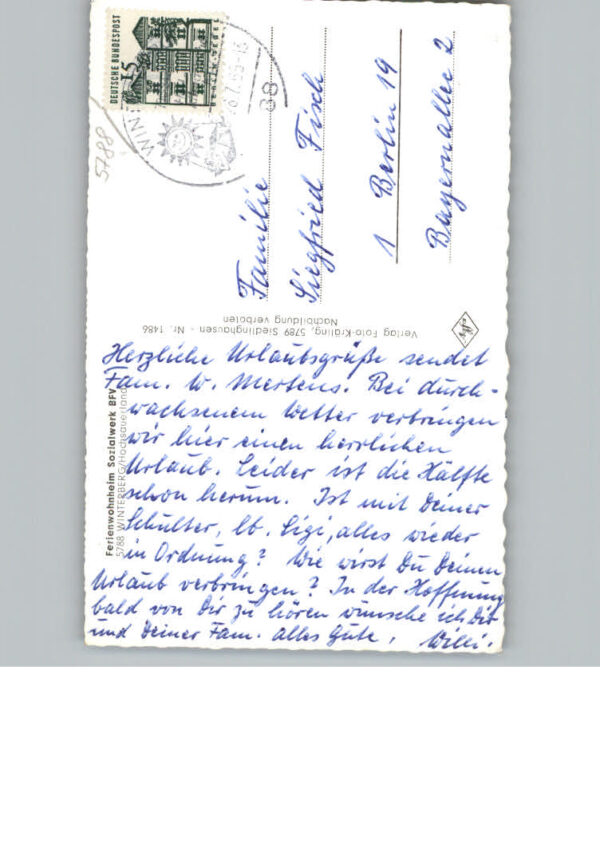 Herzliche Urlaubsgrüße sendet
Fam. W. Mertens. Bei durch-
wachsenem Wetter verbringen
wir hier einen herrlichen
Urlaub. Leider ist die Hälfte
schon herum. Ist mit Deiner
Schulter, lb. Sigi, alles wieder
in Ordnung? Wie wirst Du Deinen
Urlaub verbringen? In der Hoffnung
bald von Dir zu hören wünsche ich Dir
und Deiner Fam. alles Gute. Willi.
Familie
Siegfried Fisch
1 Berlin 19
Bayernallee 2
Ferienwohnheim Sozialwerk BFV
5788 WINTERBERG/Hochsauerland
Verlag Foto-Kräling, 5789 Siedlinghausen - Nr. 1486
Nachbildung verboten
DEUTSCHE BUNDESPOST
15
5788